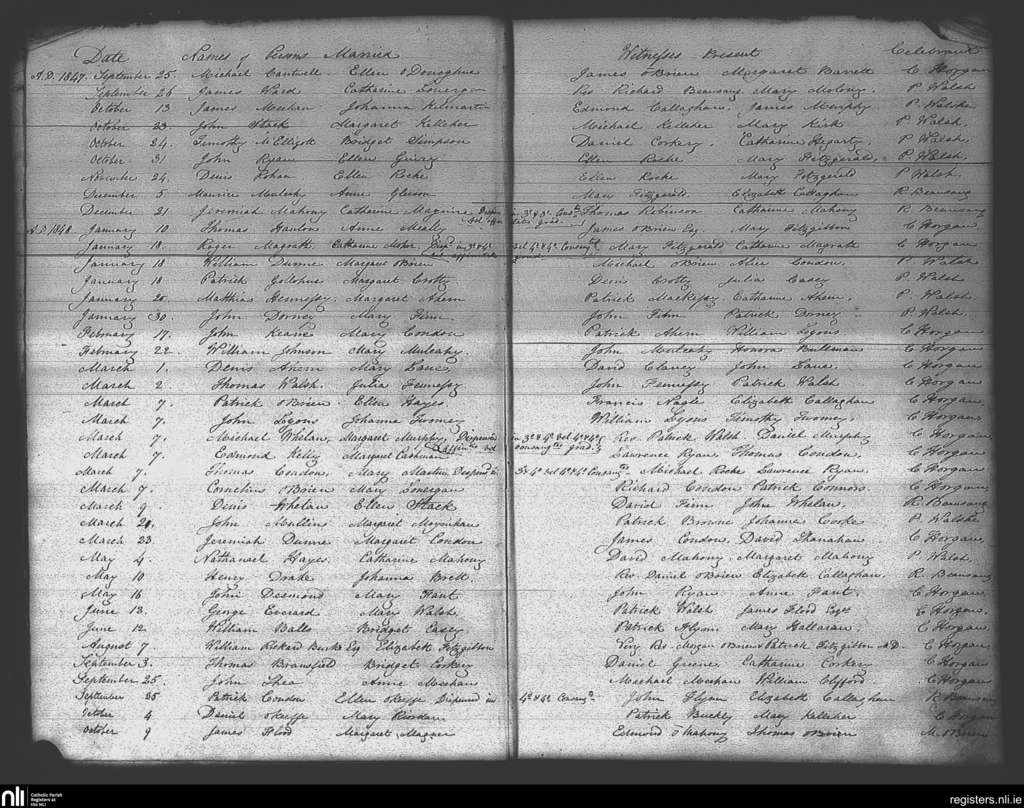 Date Names of Persons Married Witnesses Present Celebrant
A.D. 1847. September 25. Michael Cantwell Ellen O'Donoghue James O'Brien Margaret Barrett C Horgan
September 26 James Ward Catherine Lonergan Rev Richard Beausang Mary Molony. P. Walsh
October 13 James Meehan Johanna Edmond Callaghan. James Murphy. P. Walshe
October 23. John Stack Margaret Kelleher Michael Kelleher Mary Kirk P. Walsh.
October 24. Timothy McElligott Bridget Simpson Daniel Corkery. Catharine Hegarty. P. Walsh.
October 31 John Ryan Ellen Guiry Ellen Roche Mary Fitzgerald. P. Walsh.
November 24. Denis Ellen Roche Ellen Roche Mary Fitzgerald P Walsh.
December 5 Maurice Mulcahy Anne Gleeson Mary Fitzgerald Elizabeth Callaghan R Beausang
December 21 Jeremiah Mahony Catherine Maguire Thomas Robinson Catharine Mahony R. Beausang
A.D 1848 January 10 Thomas Hanlon Anne Meally James O'Brien Esq. Mary Fitzgibbon C Horgan.
January 18. Roger Magrath Catharine Maher Mary Fitzgerald Catharine Magrath C Horgan
January 18 William Dunne Margaret O'Brien Michael O'Brien Alice Condon. P. Walsh
January 18 Patrick Margaret Crotty Denis Crotty Julia Casey P. Walsh
January 20. Matthias Hennessy. Margaret Ahern Patrick Mackessy Catharine Ahern. P. Walsh.
January 30. John Dorney Mary Finn John Finn Patrick Dorney P. Walsh.
February 17. John Keane Mary Condon Patrick Ahern William Lyons C Horgan
February 22. William Johnson Mary Mulcahy. John Mulcahy Honora Bullman C Horgan
March 1. Denis Ahern Mary Lane. David Clancy John Lane. C Horgan
March 2 Thomas Walsh. Julia Fennessy John Fennessy Patrick Walsh C Horgan.
March 7. Patrick O'Brien Ellen Hayes Francis Nagle Elizabeth Callaghan C Horgan
March 7. John Lyons Johanna Twomey William Lyons Timothy Twomey. C Horgan.
March 7. Michael Whelan, Margaret Murphy, Rev. Patrick Walsh Daniel Murphy. C Horgan.
March 7. Edmond Kelly Margaret Lawrence Ryan. Thomas Condon. C Horgan.
March 7. Thomas Condon. Mary Michael Roche Lawrence Ryan. C Horgan.
March 7. Cornelius O'Brien Mary Lonergan Richard Condon Patrick Connors C Horgan.
March 9. Denis Whelan Ellen Stack David Finn John Whelan. R. Beausang
March 20. John Mullins Margaret Moynihan Patrick Browne Johanna Cooke P. Walshe
March 23 Jeremiah Dunne Margaret Condon James Condon, David Shanahan C Horgan.
May 4. Nathanael Hayes. Catharine Mahony David Mahony Margaret Mahony P. Walsh.
May 10 Henry Drake Johanna Brett. Rev. Daniel O'Brien Elizabeth Callaghan. R. Beausang
May 16 John Desmond Mary Hant John Ryan Anne Hant. C Horgan.
June 13. George Everard Mary Walsh. Patrick Walsh James Flood Esqr C Horgan.
June 12. William Balls Bridget Casey Patrick Flynn. Mary Halloran. C Horgan.
August 7. William Rickard Burke Esq Elizabeth Fitzgibbon Very Rev Morgan O'Brien Patrick Fitzgibbon M.D. C Horgan
September 3. Thomas Bransfield Bridget Corkery Daniel Greene. Catharine Corkery C Horgan
September 25. John Shea Anne Meehan Michael Meehan William Clifford C Horgan
September 25 Patrick Condon Ellen O'Keeffe Dispensed in 4th & 4th Consang. John Flynn Elizabeth Callaghan R Beausang
October 4 Daniel O'Keeffe Mary Riordan Patrick Buckly Mary Kelleher C Horgan
October 9 James Flood Margaret Magner Edmond O'Mahony Thomas O'Brien M. O'Brien
nli Catholic Parish Registers at the NLI
registers.nli.ie